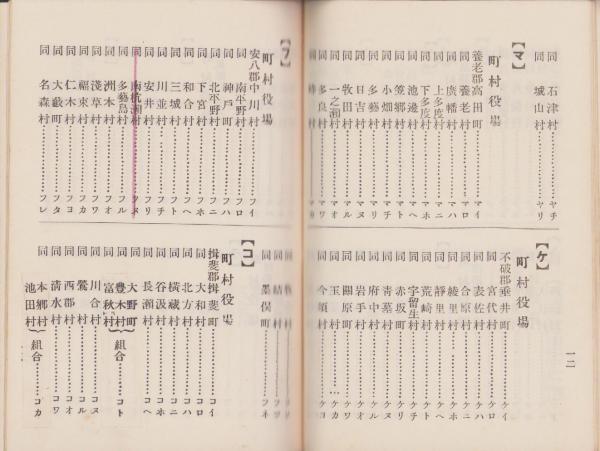 同 石津村……ヤチ
同 城山村……ヤリ
【マ】
町村役場
養老郡高田町……マイ
同 養老村……マロ
同 廣幡村……マハ
同 上多度村……マニ
同 下多度村……マホ
同 池邊村……マヘ
同 笠郷村……マト
同 小畑村……マチ
同 多藝村……マリ
同 日吉村……マヌ
同 牧田村……マル
同 一之瀬村……マオ
同 多良村……マワ
同 時村……マカ
【ケ】
町村役場
不破郡垂井町……ケイ
同 宮代村……ケロ
同 表佐村……ケハ
同 合原村……ケニ
同 綾里村……ケホ
同 靜里村……ケヘ
同 荒崎村……ケト
同 宇留生村……ケチ
同 赤坂町……ケリ
同 青墓村……ケヌ
同 府中村……ケル
同 岩手村……ケオ
同 關原町……ケワ
同 玉村……ケカ
同 今須村……ケヨ
一二
【フ】
町村役場
安八郡中川村……フイ
同 南平野村……フロ
同 神戸町……フハ
同 北平野村……フニ
同 下宮村……フホ
同 和合村……フヘ
同 三城村……フト
同 川並村……フチ
同 安井村……フリ
同 南杭瀬村……フヌ
同 多藝島村……フル
同 洲本村……フオ
同 淺草村……フワ
同 福束村……フカ
同 仁木村……フヨ
同 大藪町……フタ
同 名森村……フレ
同 結村
同 墨俣町……フネ
【コ】
町村役場
揖斐郡揖斐町……コイ
同 大和村……コロ
同 北方村……コハ
同 横藏村……コニ
同 谷汲村……コホ
同 長瀬村……コヘ
同 大野町
同 豊木村
同 富秋村
組合……コト
同 川合村……コヌ
同 鶯村……コル
同 西郡村……コオ
同 清水村……コワ
同 本郷村
池田村
組合……コカ